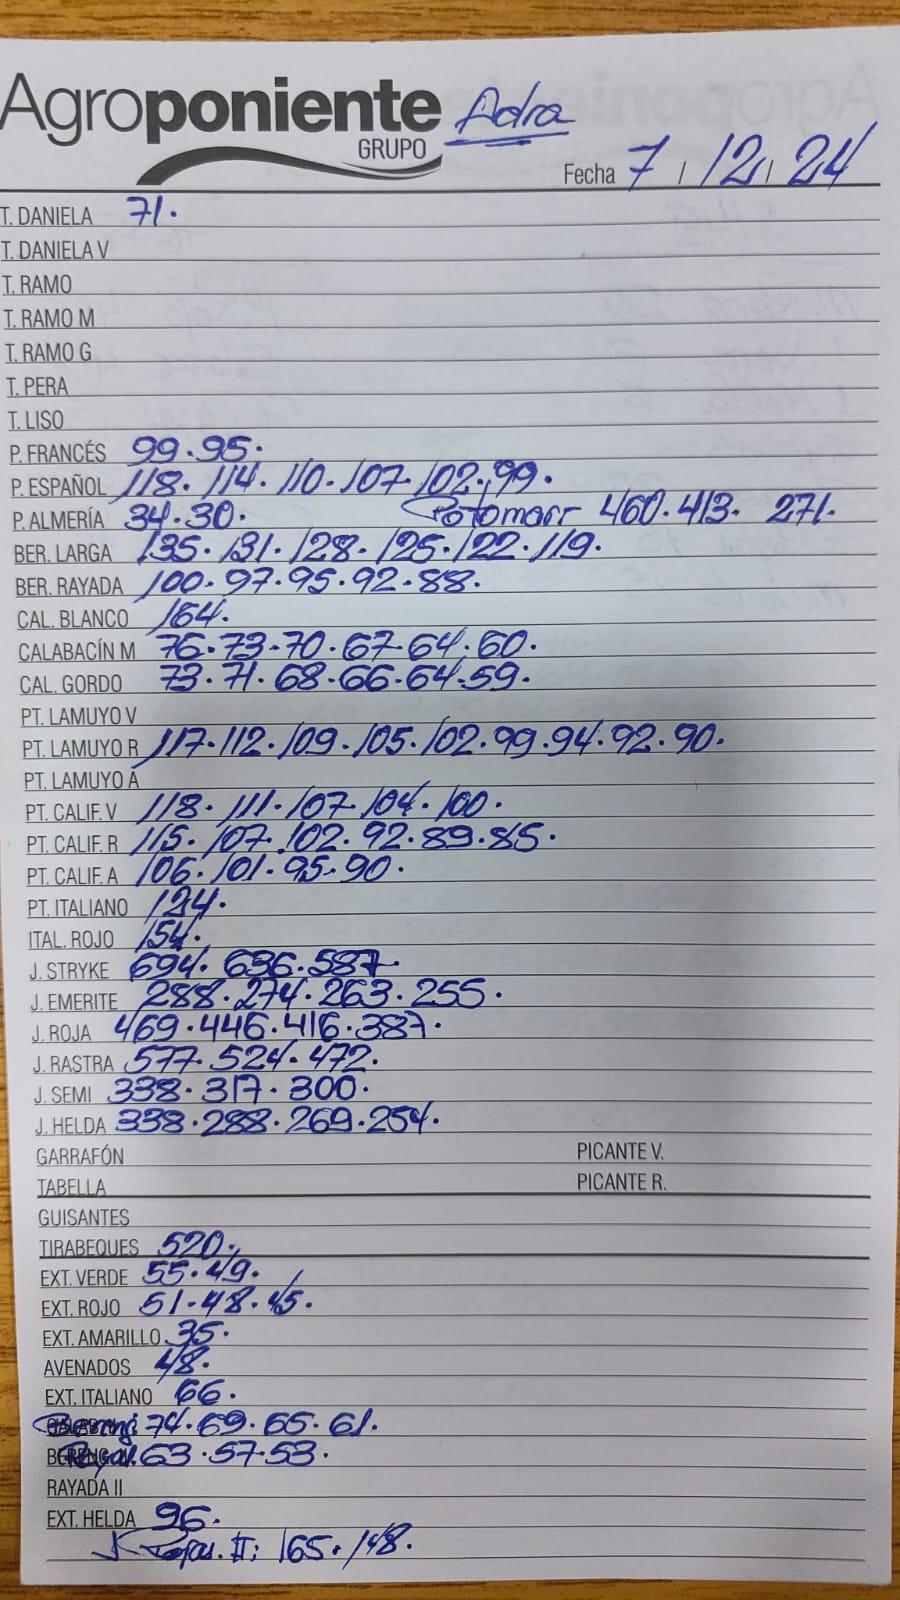 Agroponiente Adra
GRUPO
Fecha 7 / 12 / 24
T. DANIELA 71.
T. DANIELA V
T. RAMO
T. RAMO M
T. RAMO G
T. PERA
T. LISO
P. FRANCÉS 99.95.
P. ESPAÑOL 118. 114. 110. 107. 102. 99.
P. ALMERÍA 34.30. 460.413. 271.
BER. LARGA 135. 131. 128. 125. 122. 119.
BER. RAYADA 100. 97. 95. 92. 88.
CAL. BLANCO 164.
CALABACÍN M 76.73.70.67.64.60.
CAL. GORDO 73.71.68.66.64.59.
PT. LAMUYO V
PT. LAMUYO R 117.112.109.105.102.99.94.92.90.
PT. LAMUYO A
PT. CALIF. V 118. 111. 107. 104. 100.
PT. CALIF. R 115. 107. 102. 92. 89. 85.
PT. CALIF. A 106. 101. 95. 90.
PT. ITALIANO 124.
ITAL. ROJO 154.
J. STRYKE 694. 636. 587.
J. EMERITE 288. 274. 263. 255.
J. ROJA 469. 446. 416. 387.
J. RASTRA 577. 524. 472.
J. SEMI 338. 317. 300.
J. HELDA 338. 288. 269. 254.
GARRAFÓN PICANTE V.
TABELLA PICANTE R.
GUISANTES
TIRABEQUES 520.
EXT. VERDE 55.49.
EXT. ROJO 51.48.45.
EXT. AMARILLO 35.
AVENADOS 48.
EXT. ITALIANO 66.
74.69.65.61.
63.57.53.
RAYADA II
EXT. HELDA 96.
II: 165. 148.